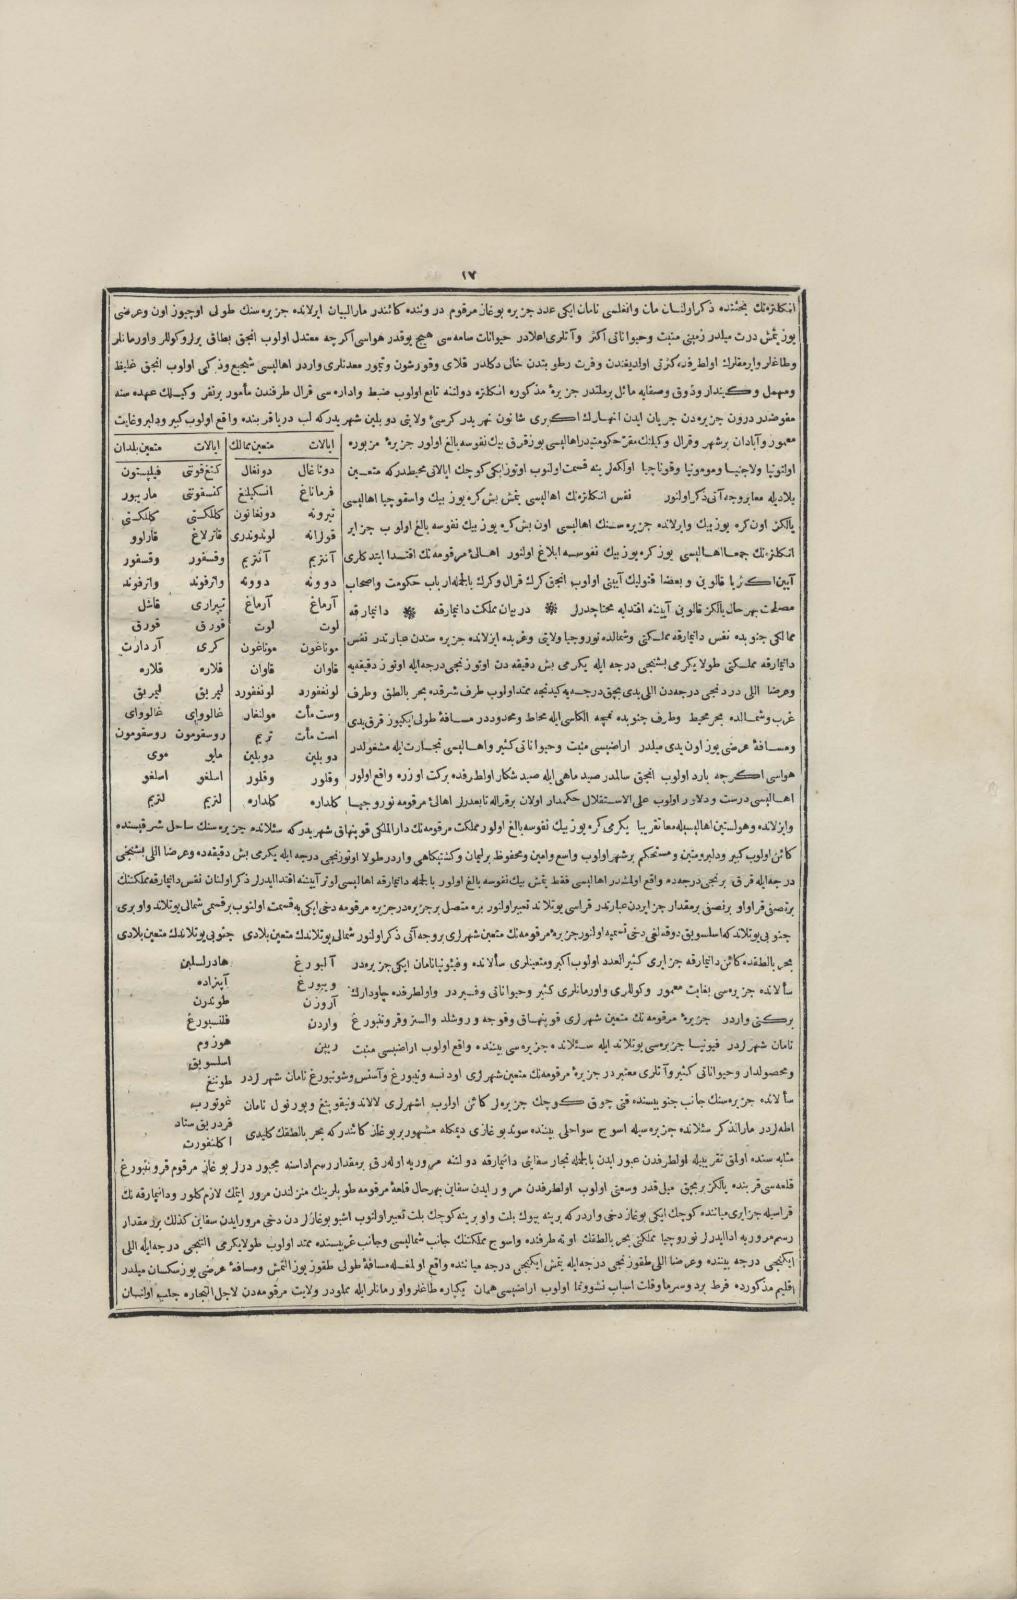 ١٧
انكلتره‌نك بحثنده ذكر اولنان مان وانغلسى نامان ايكى عدد جزيره بوغاز مرقوم دروننده كائندر مارالبيان ايرلانده جزيره سنك طولى اوچيوز اون وعرضى
يوز يتمش درت ميلدر زمينى منبت وحيواناتى اكثر وآتلرى اعلادر حيوانات سامه سى هيچ يوقدر هواسى اكرچه معتدل اولوب انجق بطاق يرلر وكوللر واورمانلر
وطاغلر وايرمقلرك اولطرفده كثرتى اولديغندن وفرت رطوبتدن خالى دكلدر قلاى وقورشون وتيمور معدنلرى واردر اهاليسى شجيع وذكى اولوب انجق غليظ
ومهمل وكيندار وذوق وصفايه مائل يرملتدر جزيرۀ مذكوره انكلتره دولتنه تابع اولوب ضبط واداره سى قرال طرفندن مأمور برنفر وكيلك عهده سنه
مفوضدر درون جزيره‌دن جريان ايدن انهارك اكبرى شانون نهريدر كرسئ ولايتى دوبلين شهريدر كه لب دريا قربنده واقع اولوب كبير ودلبر وغايت
معمور وآبادان برشهر وقرال وكيلنك مقر حكومتيدر اهاليسى يوز قرق بيك نفوسه بالغ اولور جزيرۀ مزبوره
اولتونيا ولاجنيا ومومونيا وقوناچيا اولكه‌لرينه قسمت اولنوب اوتوز ايكى كوچك ايالاتى محيطدر كه متعين
بلاديله معا بروجه آتى ذكر اولنور نفس انكلتره‌نك اهاليسى يتمش بش كره يوز بيك واسقوچيا اهاليسى
يالكز اون كره يوز بيك وايرلانده جزيره سنك اهاليسى اون بش كره يوز بيك نفوسه بالغ اولوب جزاير
انكلتره‌نك جمعا اهاليسى يوز كره يوز بيك نفوسه ابلاغ اولنور اهالئ مرقومه‌نك اقتدا ايتدكلرى
آيين اكثريا قالوين وبعضا قتوليك آيينى اولوب انجق كرك قرال وكرك بالجمله ارباب حكومت واصحاب
مصلحت بهر حال يالكز قالوين آييننه اقتدايه محتاجدرلر در بيان مملكت دانيمارقه دانيمارقه
ممالكى جنوبده نفس دانيمارقه مملكتى وشمالده نوروجيا ولايتى وغربده ايزلانده جزيره سندن عبارتدر نفس
دانيمارقه مملكتى طولا يكرمى بشنجى درجه ايله يكرمى بش دقيقه دن اوتوزنجى درجه ايله اوتوز دقيقه‌يه
وعرضا اللى دردنجى درجه‌دن اللى يدى بچق درجه‌يه كيدنجه ممتد اولوب طرف شرقده بحر بالطق وطرف
غرب وشمالده بحر محيط وطرف جنوبده نمچه الكاسى ايله محاط ومحدوددر مسافۀ طولى ايكيوز قرق يدى
ومسافۀ عرضى يوز اون يدى ميلدر اراضيسى منبت وحيواناتى كثير واهاليسى تجارت ايله مشغولدر
هواسى اكرچه بارد اولوب انجق سالمدر صيد ماهى ايله صيد شكار اولطرفده بركت اوزره واقع اولور
اهاليسى درست ودلاور اولوب على الاستقلال حكمدار اولان برقراله تابعدرلر اهالئ مرقومه نوروجيا
ايالات متعين ممالك ايالات متعين بلدان
دوناغال دونغال كنغ‌قونتى فيليپستون
فرماناغ انسكيلنغ كنسقونتى ماريبور
تيرونه دونغانون كلكنى كلكنى
قولرانه لوندوندرى قاترلاغ قارلوو
آنتريم آنتريم وقسفور وقسفور
دوونه دوونه واترفوند واترفوند
آرماغ آرماغ تيپرارى قاشل
لوت لوت قورق قورق
موناغون موناغون كرى آردارت
قاوان قاوان قلاره قلاره
لونغفورد لونغفورد ليمريق ليمريق
وست مأت مولنغار غالوواى غالوواى
است مأت تريم روسقومون روسقومون
دوبلين دوبلين مايو موى
وقلور وقلور اسلغو اسلغو
كلداره كلداره لتريم لتريم
وايزلانده وهولستين اهاليسيله معا تقريبا يكرمى كره يوز بيك نفوسه بالغ اولور مملكت مرقومه‌نك دار الملكى قوپنهاق شهريدر كه سئلانده جزيره سنك ساحل شرقيسنده
كائن اولوب كبير ودلبر ومتين ومستحكم برشهر اولوب واسع وامين ومحفوظ برليمان وكشتيكاهى واردر طولا اوتوزنجى درجه ايله يكرمى بش دقيقه‌ده وعرضا اللى بشنجى
درجه ايله قرق برنجى درجه‌ده واقع اولمشدر اهاليسى فقط يتمش بيك نفوسه بالغ اولور بالجمله دانيمارقه اهاليسى لوتر آييننه اقتدا ايدرلر ذكر اولنان نفس دانيمارقه مملكتنك
برنصفى قراو او برنصفى برمقدار جزايردن عبارتدر قراسى يوتلاند تعبير اولنور بره متصل برجزيره‌در جزيره مرقومه دخى ايكى‌يه قسمت اولنوب برقسمى شمالى يوتلاند واوبرى
جنوبى يوتلاند كه اسلسويق دوقه‌لغى دخى تسميه اولنور جزيرۀ مرقومه‌نك متعين شهرلرى بروجه آتى ذكر اولنور شمالى يوتلاندك متعين بلادى جنوبى يوتلاندك متعين بلادى
بحر بالطقده كائن دانيمارقه جزايرى كثير العدد اولوب اكبر ومتعينلرى سألانده وفيئونيا نامان ايكى جزيره‌در
سألانده جزيره سى بغايت معمور وكوللرى واورمانلرى كثير وحيواناتى وفيردر واولطرفده چاودارك
بركتى واردر جزيرۀ مرقومه‌نك متعين شهرلرى قوپنهاق وقوجه وروشلد والسنز وقرونبورغ
نامان شهرلردر فيونيا جزيره سى يوتلاند ايله سئلانده جزيره سى بيننده واقع اولوب اراضيسى منبت
ومحصولدار وحيواناتى كثير وآتلرى معتبردر جزيرۀ مرقومه‌نك متعين شهرلرى اودنسه ونيبورغ وآسنس وشونبورغ نامان شهرلردر
سألانده جزيره سنك جانب جنوبيسنده قتى چوق كوچك جزيره‌لر كائن اولوب اشهرلرى لالاند ونيقوپنغ وبورنول نامان
اطه‌لردر مارالذكر سئلانده جزيره سيله اسوج سواحلى بيننده سوند بوغازى ديمكله مشهور بربوغاز كائندر كه بحر بالطقك كليدى
آلبورغ هادرسلبن
ويبورغ آپنراده
آروزن طوندرن
واردن فلنسبورغ
ريپن هوزوم
اسلسويق
طوننغ
غوتورپ
فردريق‌ستاد
اكلنفورت
مثابه سنده اولمق تقريبيله اولطرفدن عبور ايدن بالجمله تجار سفاينى دانيمارقه دولتنه مروريه اوله‌رق برمقدار رسم اداسنه مجبوردرلر بوغاز مرقوم قرونبورغ
قلعه سى قربنده يالكز بربچق ميل قدر وسعتى اولوب اولطرفدن مرور ايدن سفاين بهر حال قلعۀ مرقومه طوپلرينك منزلندن مرور ايتمك لازم كلور ودانيمارقه نك
قراسيله جزايرى ميانده كوچك ايكى بوغاز دخى واردر كه برينه بيوك بلت واوبرينه كوچك بلت تعبير اولنوب اشبو بوغازلردن دخى مرور ايدن سفاين كذلك برر مقدار
رسم مروريه ادا ايدرلر نوروچيا مملكتى بحر بالطقك اوته طرفنده واسوج مملكتنك جانب شماليسى وجانب غربيسنده ممتد اولوب طولا يكرمى التنجى درجه ايله اللى
ايكنجى درجه بيننده وعرضا اللى طقوزنجى درجه ايله يتمش ايكنجى درجه ميانده واقع اولمغله مسافۀ طولى طقوز يوز التمش ومسافۀ عرضى يوز سكسان ميلدر
اقليم مذكورده فرط برد وسرما وقلت اسباب نشوونما اولوب اراضيسى همان يكپاره طاغلر واورمانلر ايله مملودر ولايت مرقومه‌دن لاجل التجاره جلب اولنان